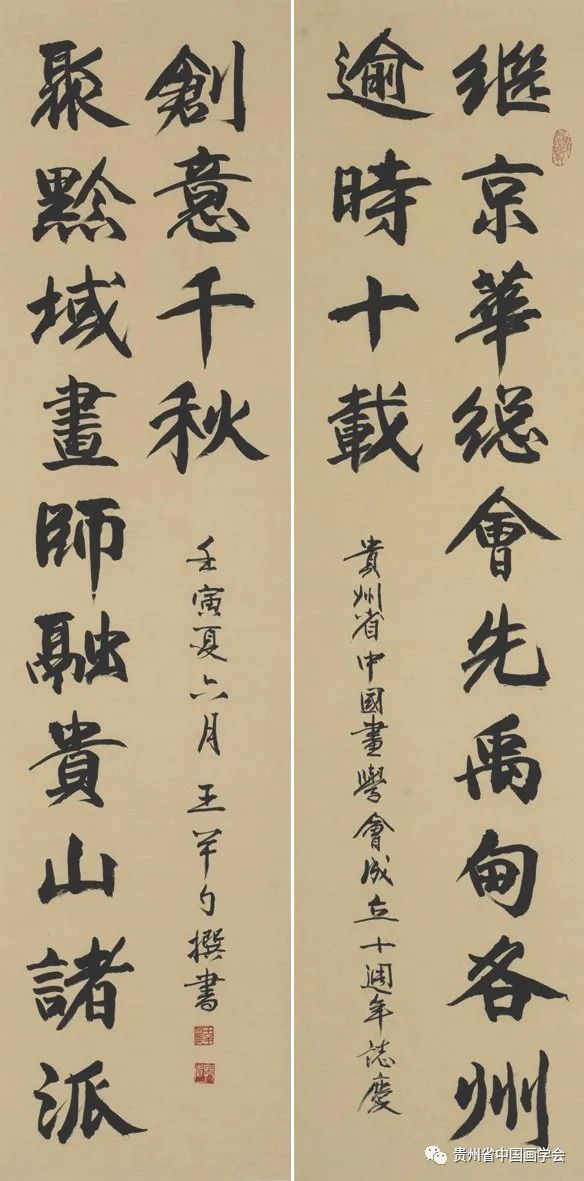 继京華総會先禹甸各州
逾時十載
貴州省中國畫學會成立十週年誌慶
聚黔域畫師融貴山諸派
創意千秋
壬寅夏六月 王羊勺撰書
贵州省中国画学会